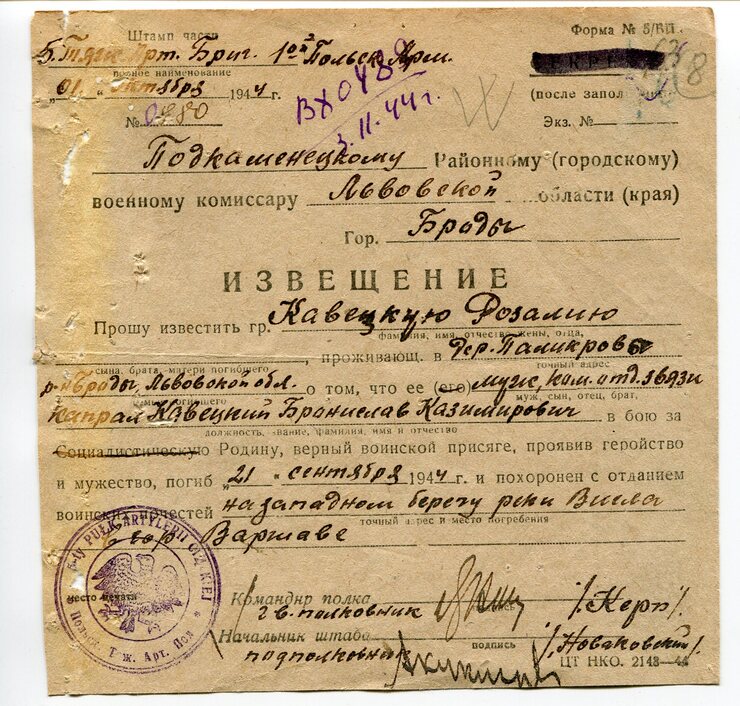 Штамп части
Форма № 5/ВП.
5. Тяж. Арт. Бриг. 1ой Польск. Арм.
полное наименование
"01" октября 1944 г.
(после заполнения)
№ 0280
Экз. №
ВХ 0489
3.11.44 г.
Подкаменецкому Районному (городскому)
военному комиссару Львовской области (края)
Гор. Броды
ИЗВЕЩЕНИЕ
Прошу известить гр. Кавецкую Розалию
фамилия, имя, отчество жены, отца,
, проживающ. в дер. Паликровы
сына, брата, матери погибшего
точный адрес
р-н Броды, Львовской обл. о том, что ее (его) муж, ком. отд. связи
муж, сын, отец, брат,
капрал Кавецкий Бронислав Казимирович в бою за
должность, звание, фамилия, имя и отчество
Социалистическую Родину, верный воинской присяге, проявив геройство
и мужество, погиб "21" сентября 1944 г. и похоронен с отданием
воинских почестей на западном берегу реки Висла
точный адрес и место погребения
Варшаве
5-ty PUŁK ARTYLERII CIĘŻKIEJ
Польск. Тяж. Арт. Пол
место печати
Командир полка
гв. полковник /Керп/.
Начальник штаба
подпись
подполковник /Новаковский/.
ЦТ НКО. 2143—44